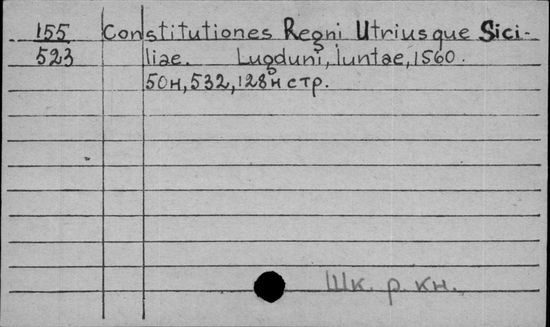 155 Constitutiones Regni Utriusque Sici-
523 liae. Lugduni, Iuntae, 1560.
50н, 532, 128н стр.
Шк. р. кн.